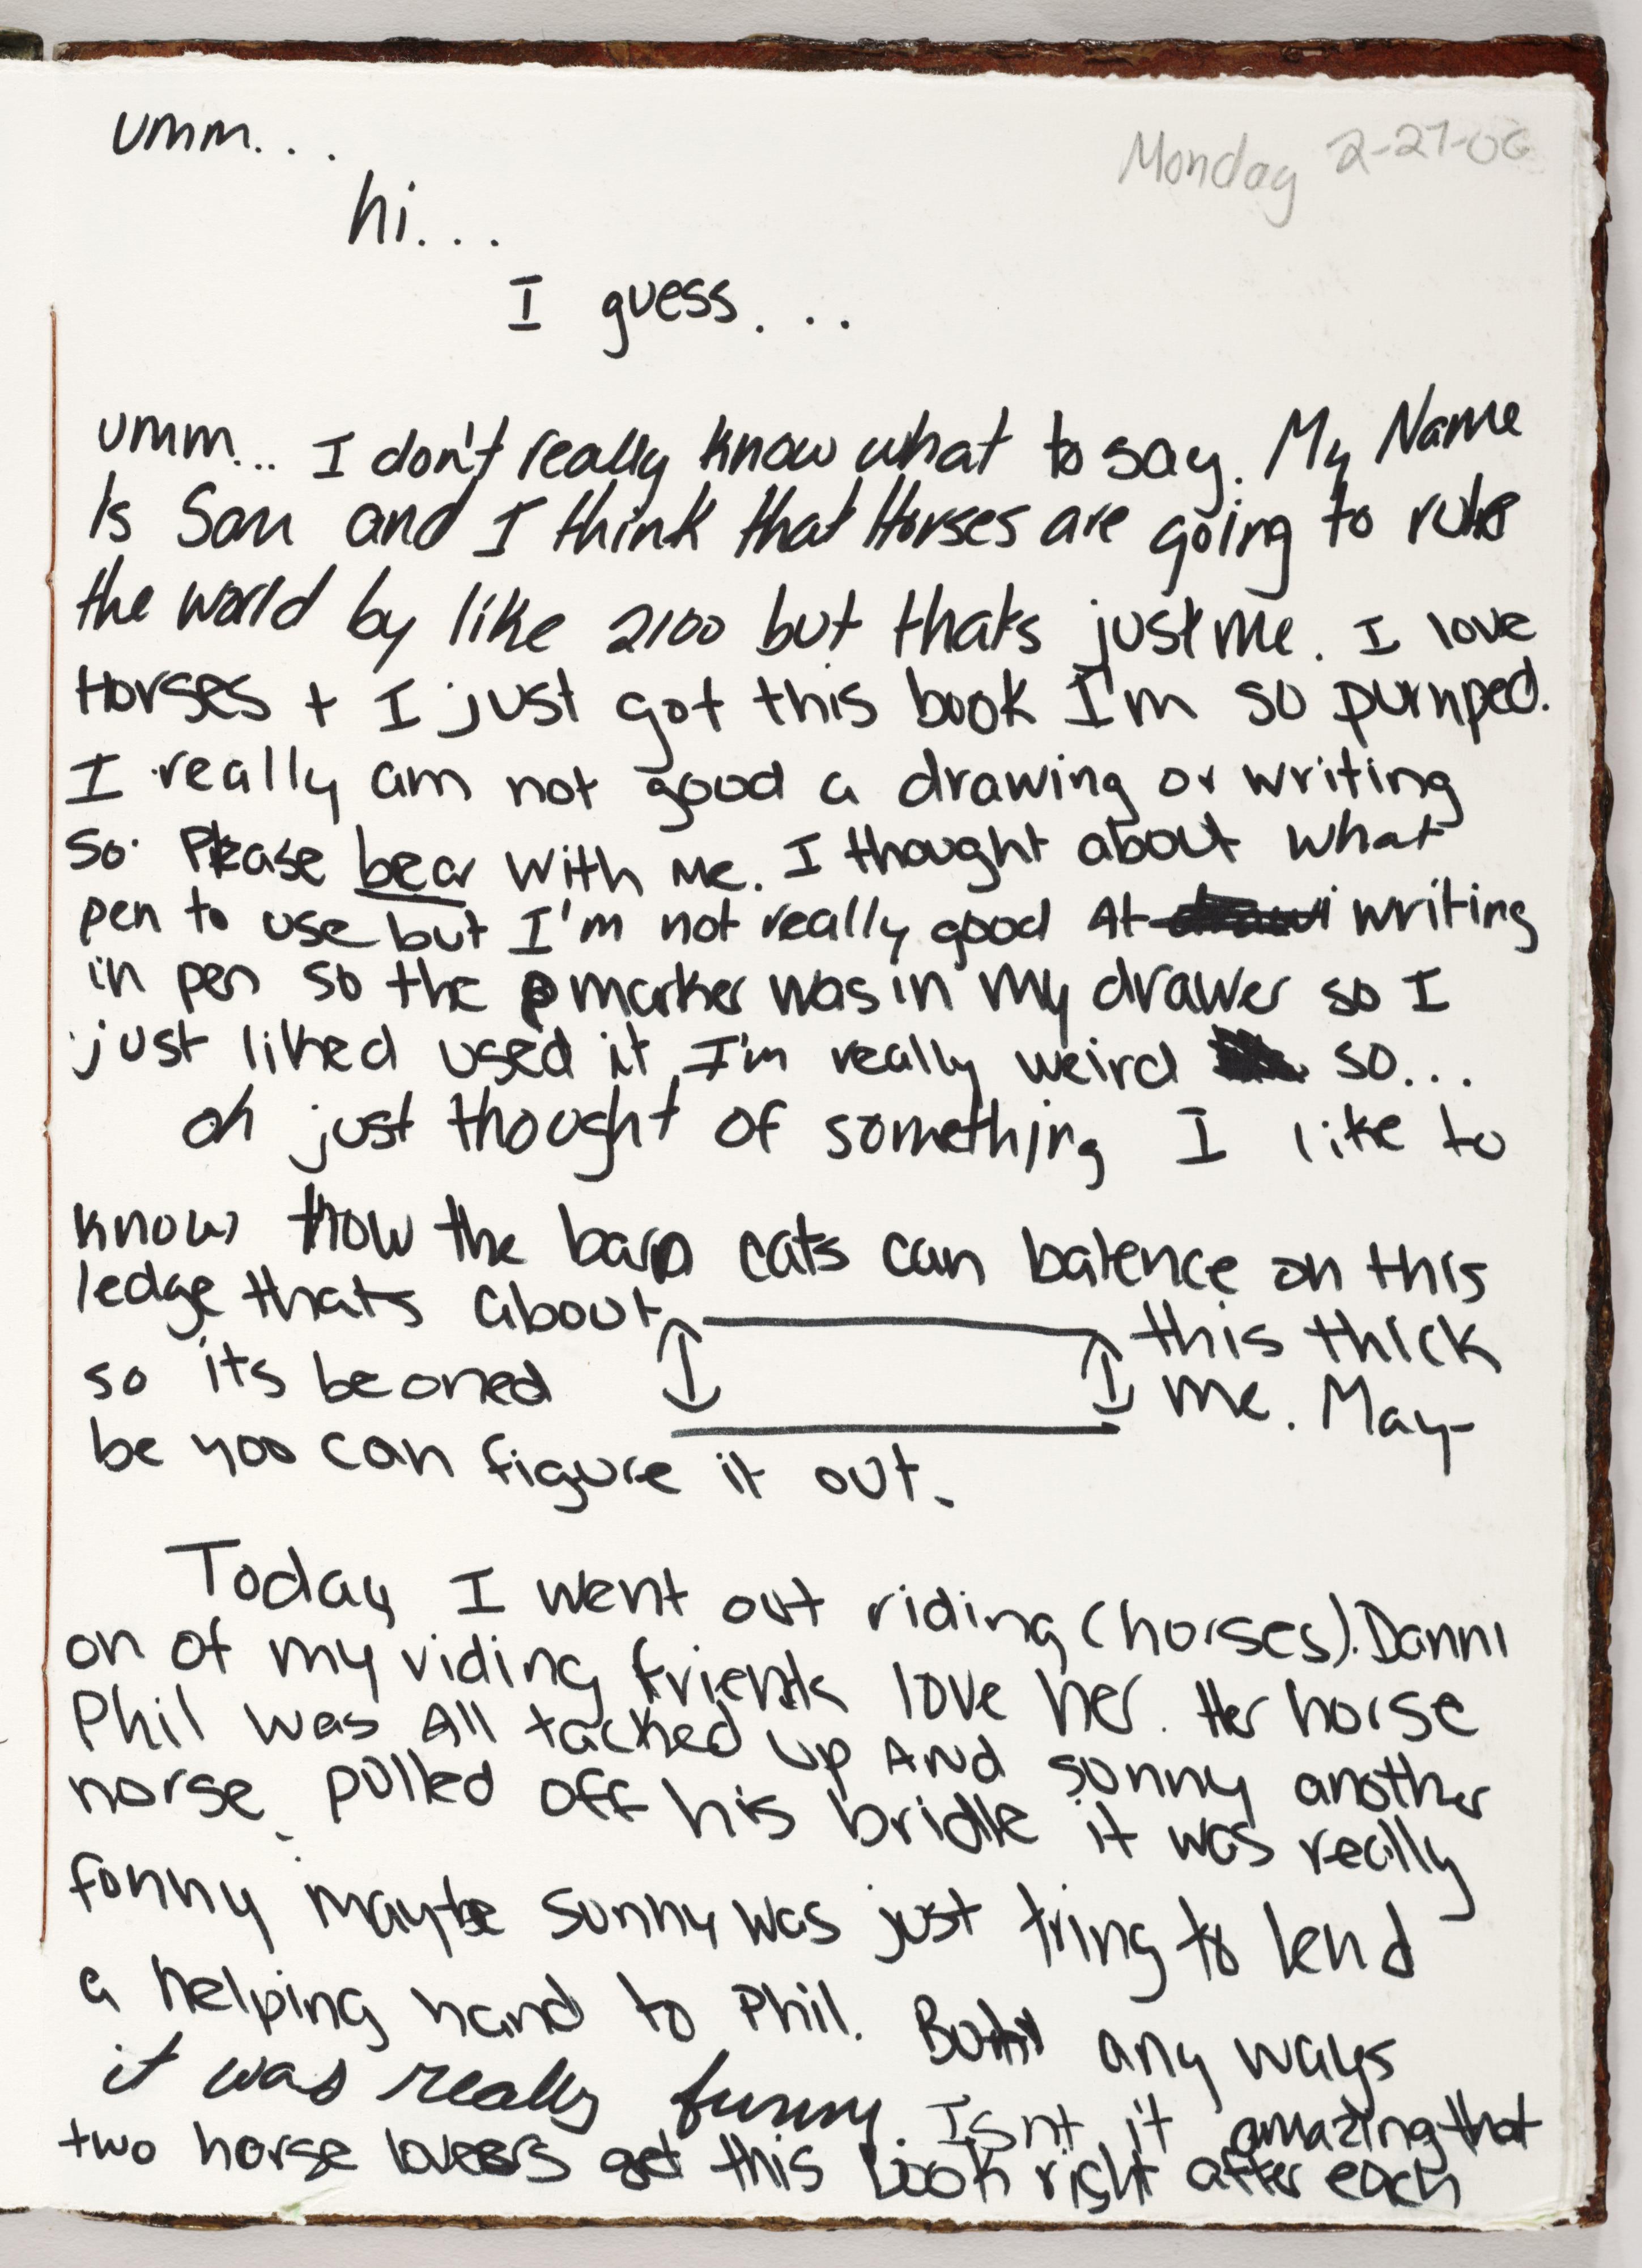 umm...
Monday 2-27-06
hi...
I guess...
umm... I don't really know what to say. My Name
Is Sam and I think that Horses are going to rule
the world by like 2100 but thats just me. I love
Horses + I just got this book I'm so pumped.
I really am not good a drawing or writing
so Please bear with me. I thought about what
pen to use but I'm not really good At writing
in pen so the marker was in my drawer so I
just liked used it I'm really weird so...
oh just thought of something I like to
know How the barn cats can balence on this
ledge thats about this thick
so its beoned me. May-
be you can figure it out.
Today I went out riding (horses). Danni
on of my riding friends love her. Her horse
Phil was All tacked up AND sonny another
horse pulled off his bridle it was really
fonny maybe sonny was just tring to lend
a helping hand to Phil. But any ways
it was really funny. Isnt it amazing that
two horse lovers get this book right after each